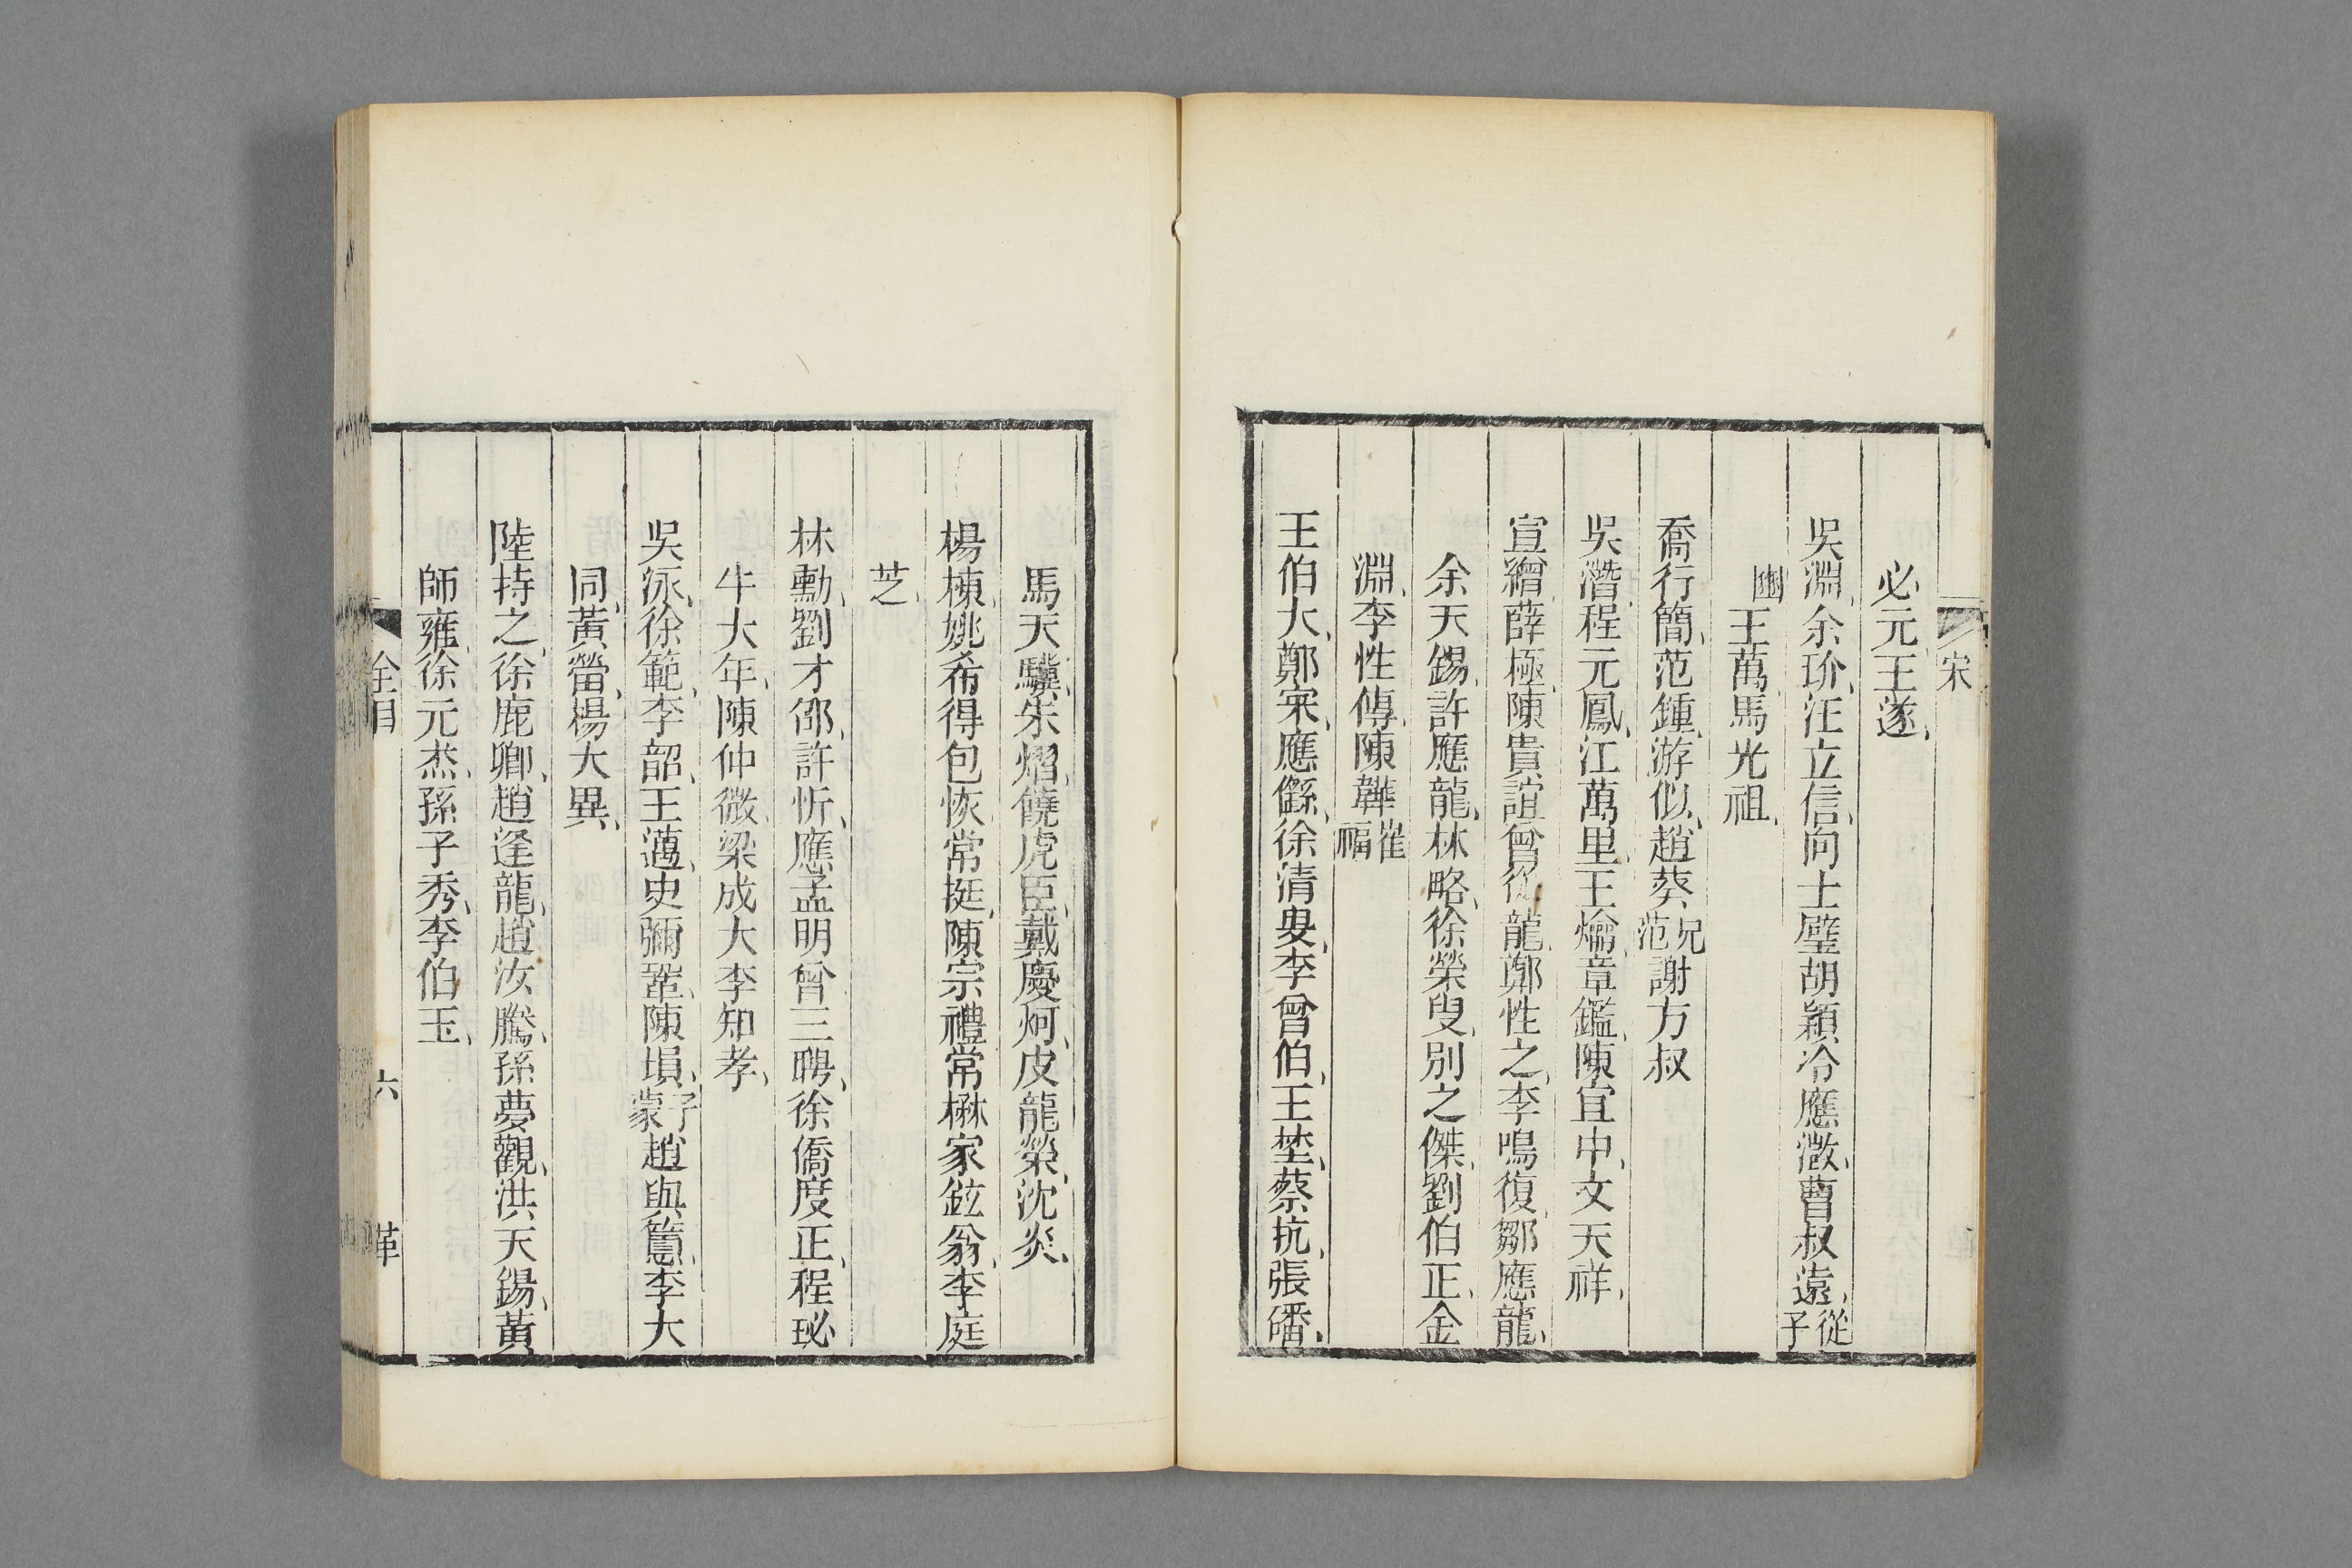 宋
必元王遂
吳淵余玠汪立信向士璧胡穎冷應澂曹叔遠從子
豳王萬馬光祖
喬行簡范鍾游似趙葵兄范謝方叔
吳潛程元鳳江萬里王爚章鑑陳宜中文天祥
宣繒薛極陳貴誼曾從龍鄭性之李鳴復鄒應龍
余天錫許應龍林略徐榮叟別之傑劉伯正金
淵李性傳陳韡崔福
王伯大鄭寀應㒡徐清叟李曾伯王埜蔡抗張磻
馬天驥朱熠饒虎臣戴慶炣皮龍榮沈炎
楊棟姚希得包恢常挺陳宗禮常楙家鉉翁李庭
芝
林勳劉才邵許忻應孟明曾三聘徐僑度正程珌
牛大年陳仲微梁成大李知孝
吳泳徐範李韶王邁史彌鞏陳塤子蒙趙與𥲅李大
同黃䇔楊大異
陸持之徐鹿卿趙逢龍趙汝騰孫夢觀洪天錫黃
師雍徐元杰孫子秀李伯玉
全目
六
革